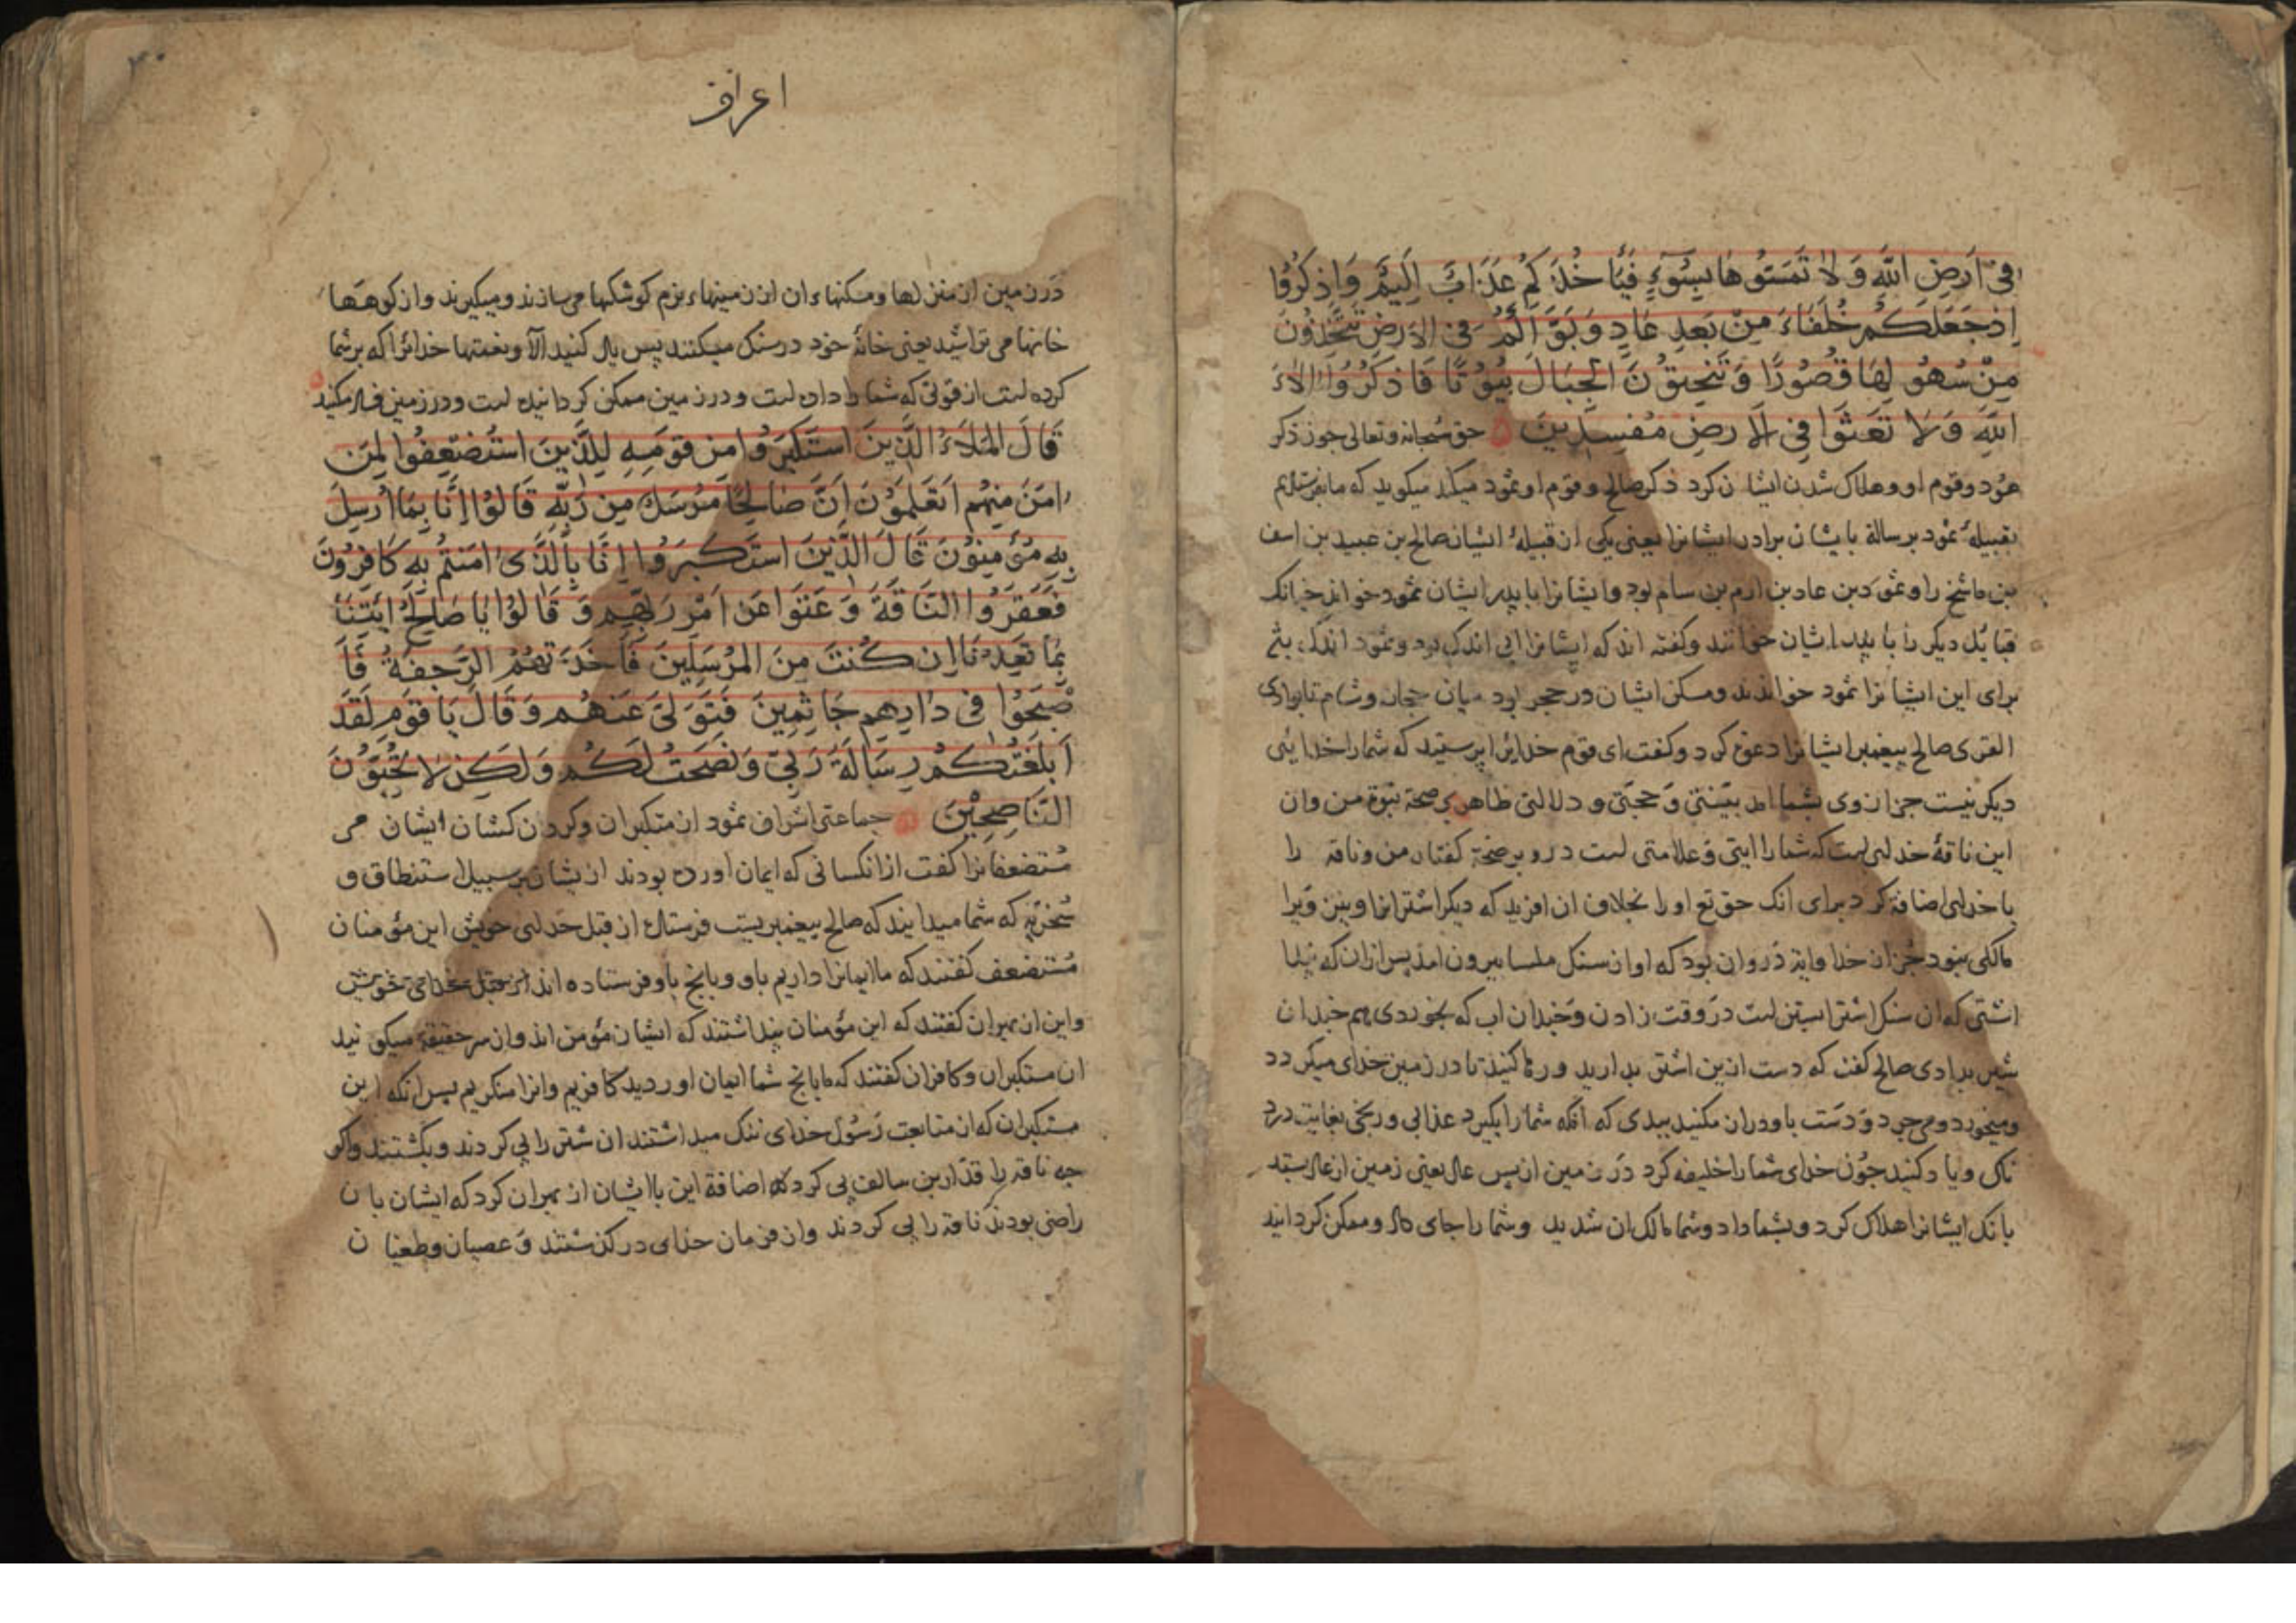 فی اَرضِ اللّهِ وَ لا تَمَسّوُها بِسُوءٍ فَیَأخُذَکُم عَذَابٌ اَلِیمٌ وَاذکُرُوا
اِذ جَعَلَکُم خُلَفَاءَ مِن بَعدِ عَادٍ وَبَوَّأکُم فی الاَرضِ تَتَّخِذُونَ
مِن سُهُولِهَا قُصُورًا وَ تَنحِتُونَ الجِبَالَ بُیُوتًا فَاذکُرُوا الاءَ
اللّهِ وَلا تَعثَوا فِی الارضِ مُفسِدِینَ حق سبحانه وتعالی چون ذکر
هود وقوم او وهلاک شدن ایشان کرد ذکر صالح وقوم او ثمود میکند میکوید که ما بفرستادیم
بقبیلهٔ ثمود برسالة بایشان برادر ایشانرا یعنی یکی از قبیلهٔ ایشان صالح بن عبید بن اسف
بن ماشخ را وثمود بن عاد بن ارم بن سام بود وایشانرا بپدر ایشان ثمود خوانند چنانک
قبایل دیکر را با پدر ایشان خوانند وکفته اند که ایشانرا ابی اندک بود وثمود اندک
برای این ایشانرا ثمود خواندند ومسکن ایشان در حجر بود میان حجاز وشام تا بوادی
القری صالح پیغمبر ایشانرا دعوة کرد وکفت ای قوم خدایرا پرستید که شمارا خدایی
دیکر نیست جز از وی بشما امد بیّنتی وَ حجتی و دلالتی ظاهر بر صحة نبوّة من وان
این ناقهٔ خدای است که شمارا ایتی وعلامتی است در وبر صحة کفتار من وناقه را
با خدای اضافة کرد برای انک حق تع او را بخلاف ان افرید که دیکر اشترانرا ونیز ویرا
مالکی نبود جُز از خدا وایة دَر وان بود که او از سنک ملسا بیرون امد پس ازان که
اشتی که ان سنک اشتر ابستن است دَر وقت زادن وَچندان اب که بخوردی هم چندان
شیر بدادی صالح کفت که دست ازین اشتر بدارید ورها کنید تا در زمین خدای میکردد
ومیخورد ومی چرد وَ دَست باو دراز مکنید ببدی که انکه شمارا بکیرد عذابی ورنجی بغایت درد
ناک ویاد کنید چوُن خدای شمارا خلیفه کرد دَر زمین از پس عاد یعنی زمین از عاد بستد
بانک ایشانرا هلاک کرد وبشما داد وشما مالک ان شدید وشما را جای داد وممکن کردانید
اعراف
دَر زمین از منزلها ومسکنهاء ان از زمینهاء نرم کوشکها می سازند ومیکیرند واز کوهها
خانها می تراشید یعنی خانهٔ خود در سنک میکنند پس یاد کنید الآ ونعمتها خدایرا که بر شما
کرده است از قوتی که شما را داده است و در زمین ممکن کردانیده است ودر زمین فساد مکنید
قَالَ المَلَاءُ الَّذِینَ استَکبَرُوا مِن قَومِهِ لِلَّذِینَ استُضعِفُوا لِمَن
امَنَ مِنهُم اَتَعلَمُونَ اَنَّ صَالِحًا مُرسَلٌ مِن رَبِّهِ قَالوُا اِنَّا بِمَا اُرسِلَ
بِهِ مُؤمِنوُنَ قَالَ الَّذِینَ استَکبَرُوا اِنَّا بِالَّذی امَنتُم بِهِ کَافِرُونَ
فَعَقَرُوا النَّاقَةَ وَ عَتَوا عَن اَمرِ رَبِّهِم وَ قَالوُا یَا صَالِحُ ائتِنَا
بِمَا تَعِدُنَا اِن کُنتَ مِنَ المُرسَلِینَ فَاَخَذَتهُمُ الرَّجفَةُ فَاَ
صبَحُوا فی دَارِهِم جَاثِمِینَ فَتَوَلیَّ عَنهُم وَ قَالَ یَا قَومِ لَقَد
اَبلَغتُکُم رِسَالَةَ رَبّی وَنَصَحتُ لَکُم وَلَکِن لا تُحِبُّونَ
النَّاصِحِینَ جماعتی اشراف ثمود از متکبران وکردن کشان ایشان مر
مُستضعفانرا کفت از انکسانی که ایمان اورده بودند از یشان بر سبیل استنطاق و
سُخریّه که شما میدانید که صالح پیغمبریست فرستاده از قبل خدای خویش این مؤمنان
مُستضعف کفتند که ما ایمانرا داریم باو وبانچ باو فرستاده اند از قبل خدای خویش
واین از بهر ان کفتند که این مؤمنان پنداشتند که ایشان مؤمن اند وان سر حقیقة میکویند
ان مستکبران وکافران کفتند که ما بانچ شما ایمان اوردید کافریم وانرا منکریم پس انکه این
مستکبران که از متابعت رَسُول خدای ننک میداشتند ان شتر را پی کردند وبکشتند واکر
چه ناقه را قدّار بن سالف پی کرد اضافة این باایشان از بهر ان کرد که ایشان بان
راضی بودند ناقه را پی کردند واز فرمان خدای در کذشتند وَ عصیان وطغیان